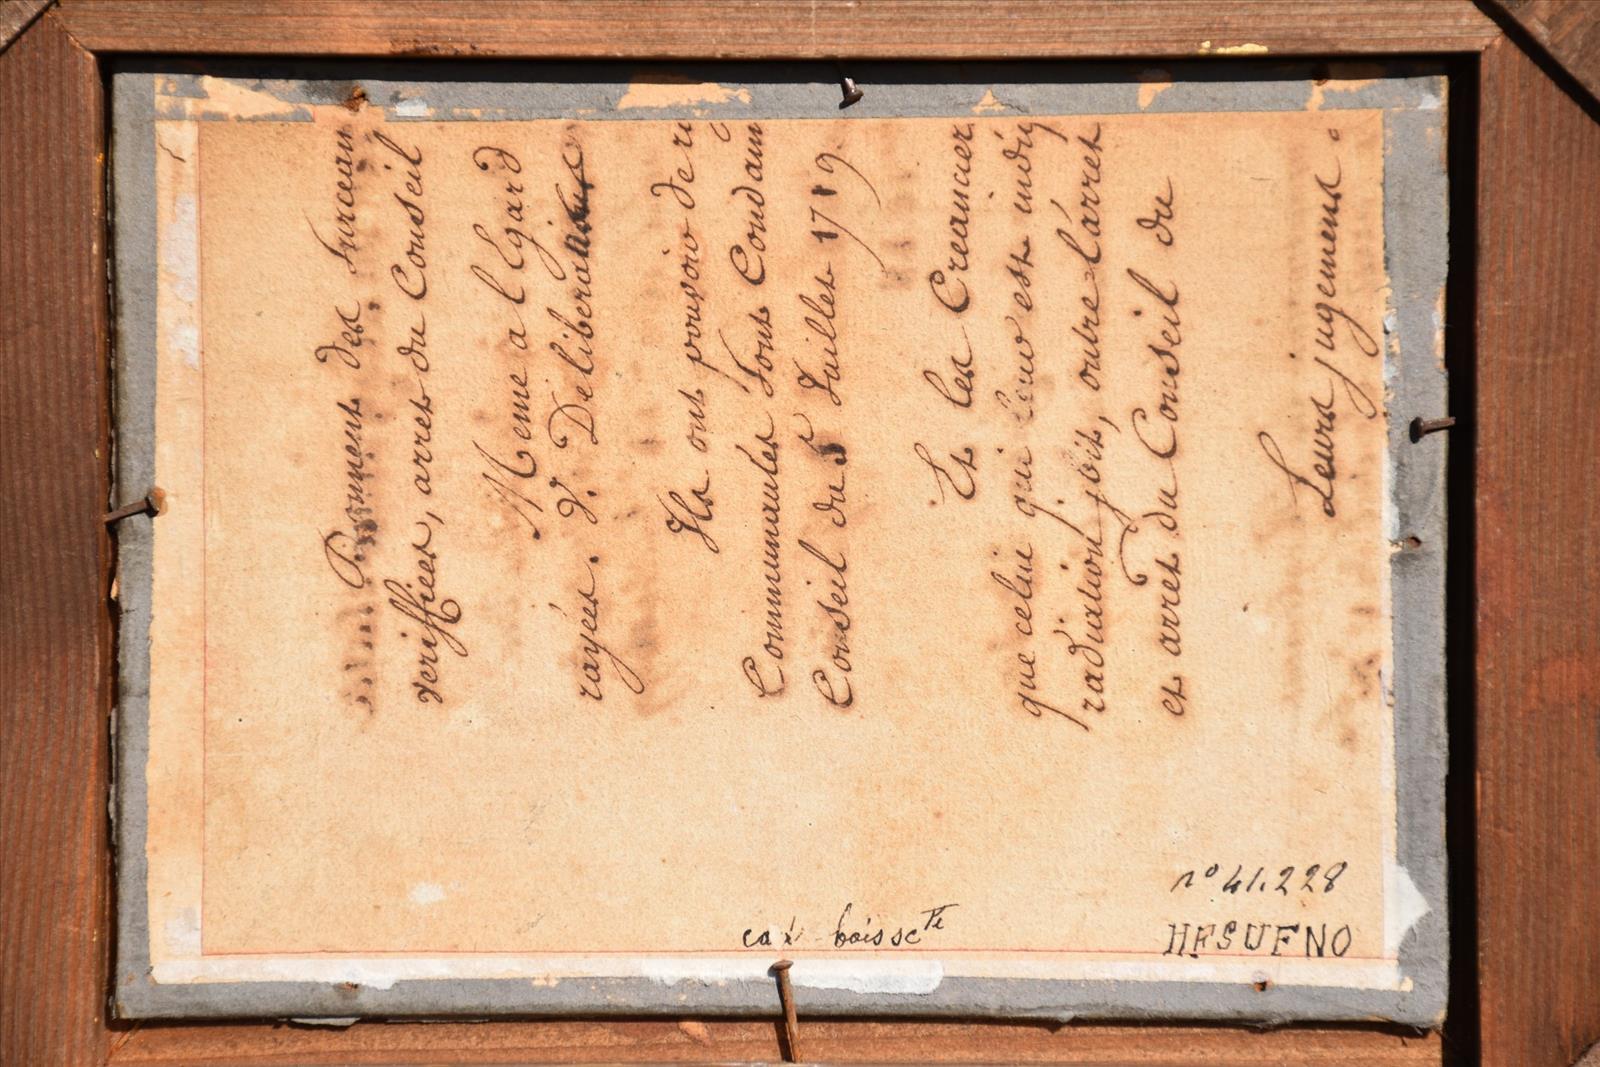 Donnent des surcean
veriffiees, arrets du Conseil
Meme a l Egard
rayées. V. Deliberations
Ils ont pouvoir de
Communautes sont Condam
Conseil du 5 Juillet 1719
Et les Creancier
que celui qui leur est indiq
raduation soit, outre l'arret
et arrêt du Conseil du
Leurs jugemens.
boissete
n° 41.228
HFSUFNO